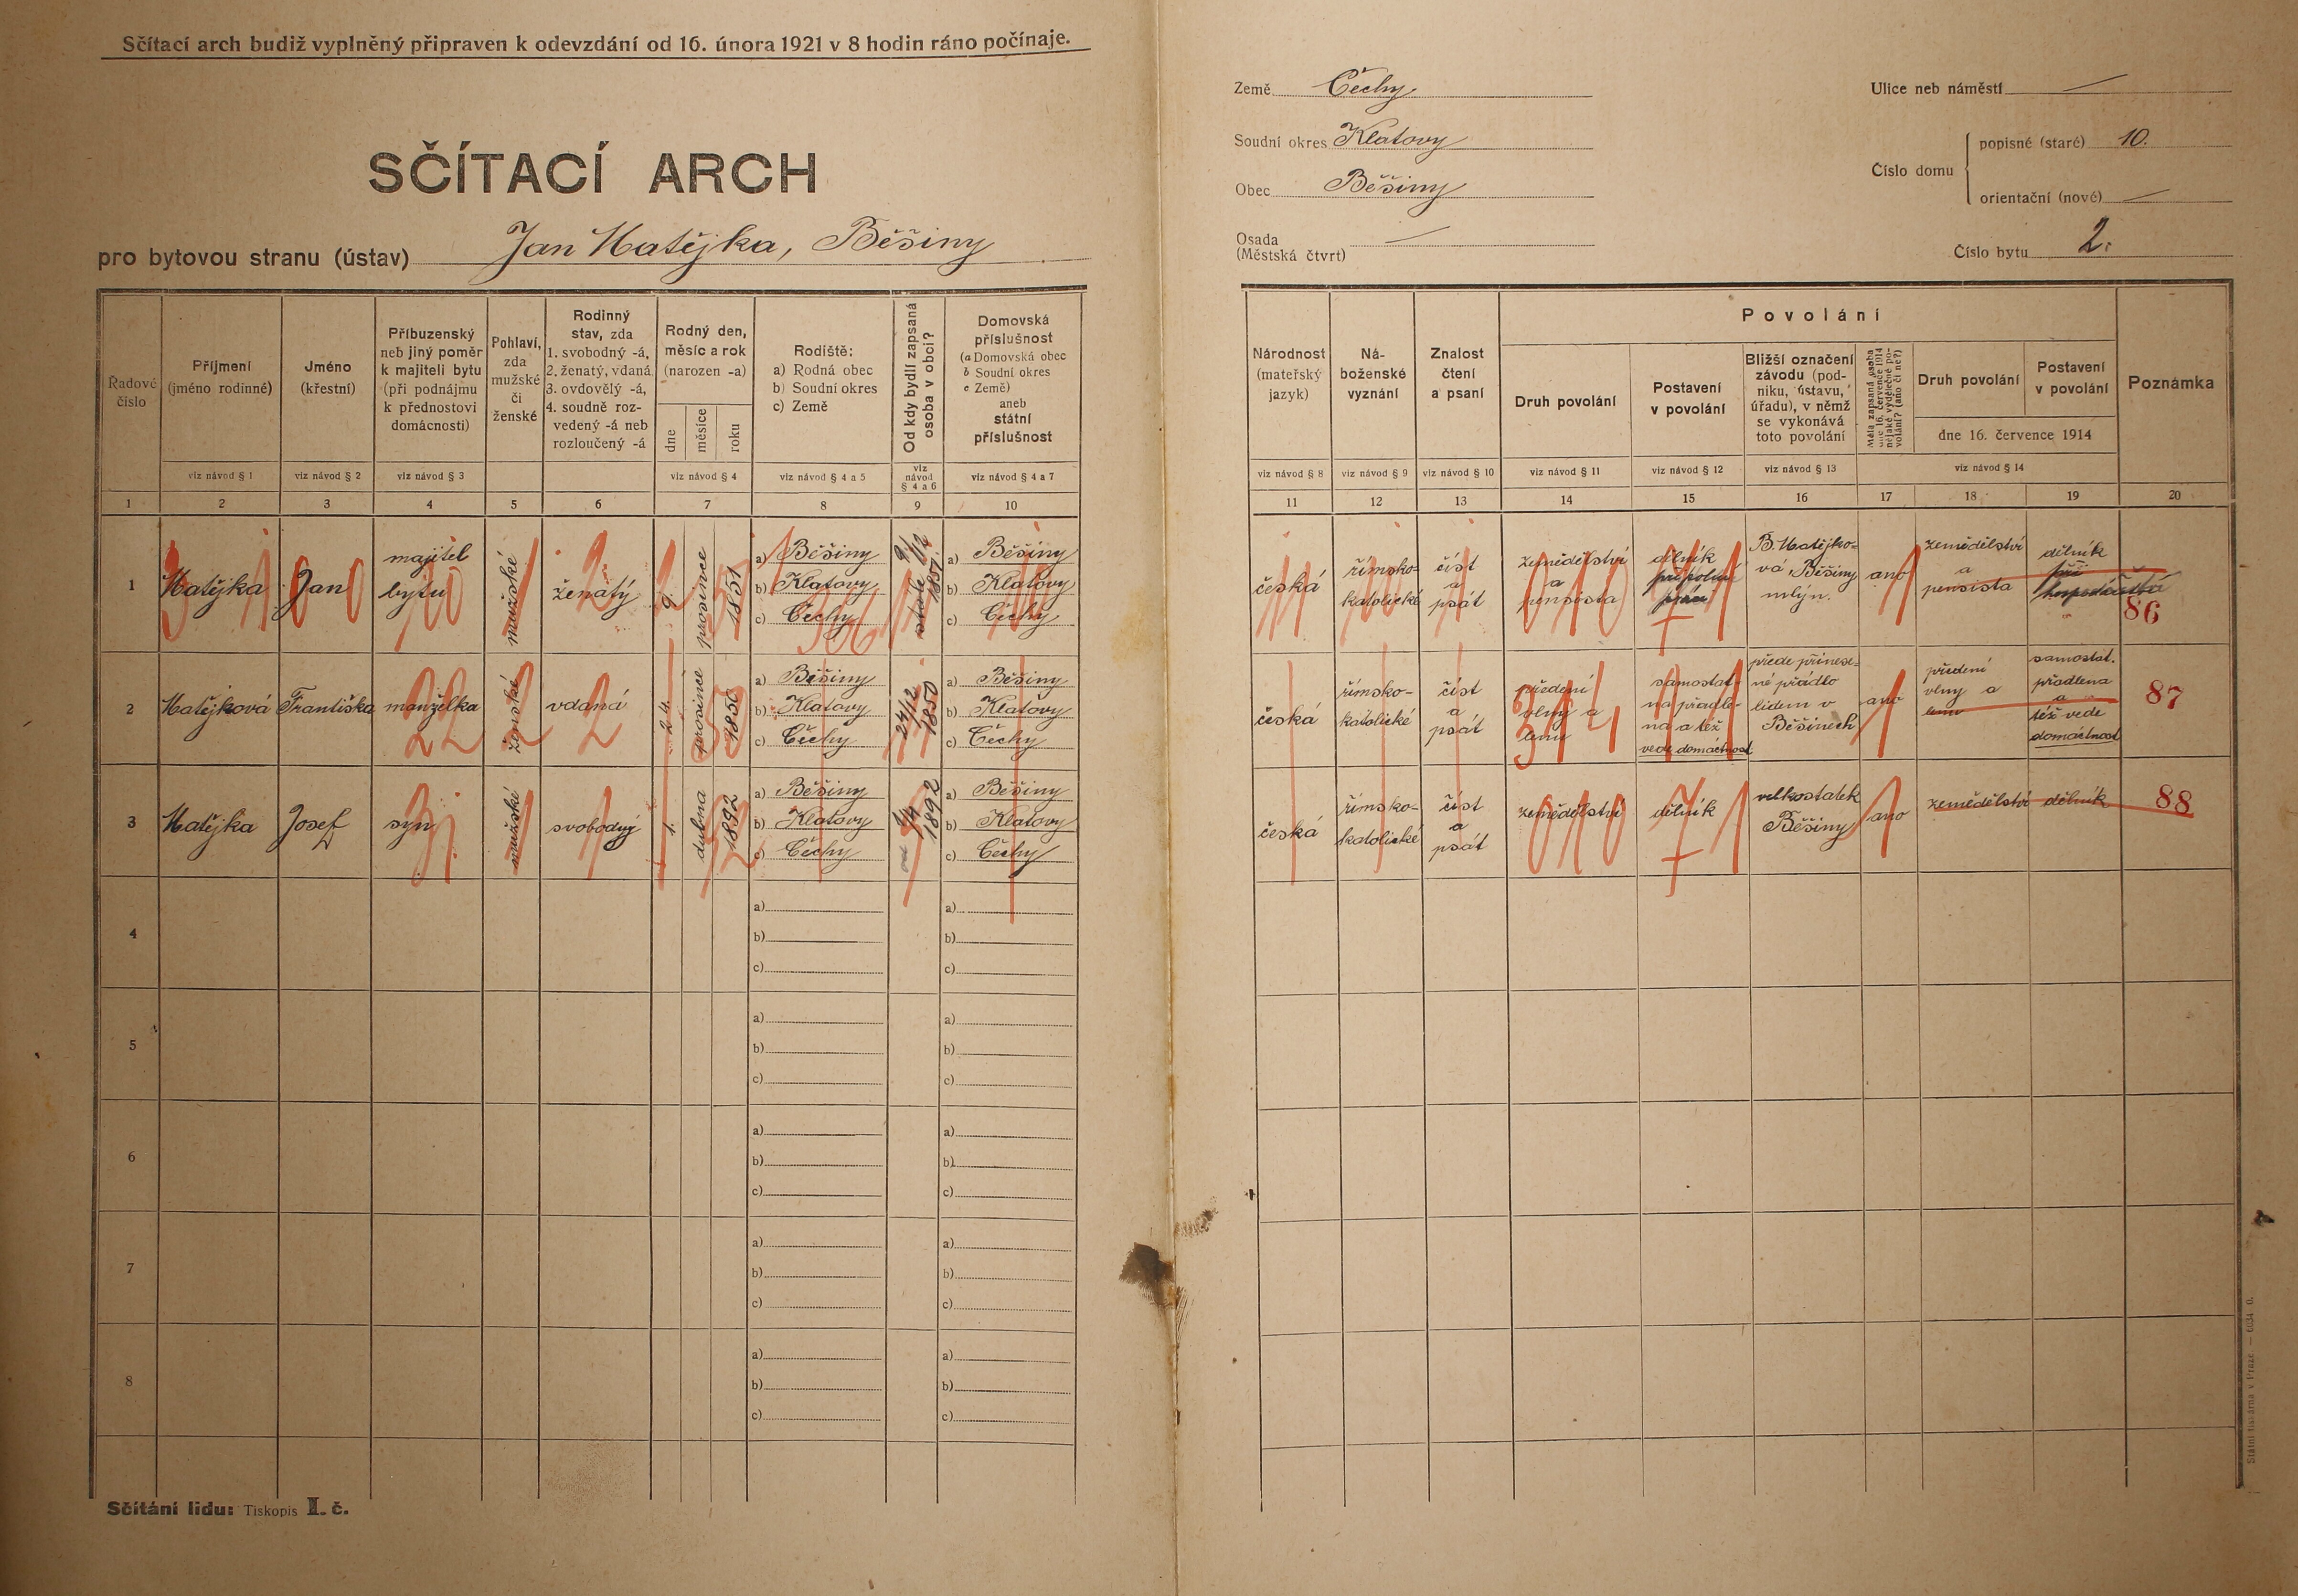 Sčítací arch budiž vyplněný připraven k odevzdání od 16. února 1921 v 8 hodin ráno počínaje.
SČÍTACÍ ARCH
pro bytovou stranu (ústav) Jan Matějka, Běšiny
Země Čechy
Soudní okres Klatovy
Obec Běšiny
Osada
(Městská čtvrt)
Ulice neb náměstí
Číslo domu
popisné (staré) 10.
orientační (nové)
Číslo bytu 2.
Řadové číslo
Příjmení (jméno rodinné)
Jméno (křestní)
Příbuzenský neb jiný poměr k majiteli bytu (při podnájmu k přednostovi domácnosti)
Pohlaví, zda mužské či ženské
Rodinný stav, zda 1. svobodný -á, 2. ženatý, vdaná 3. ovdovělý -á, 4. soudně rozvedený -á neb rozloučený -á
Rodný den, měsíc a rok (narozen -a)
dne měsíce roku
Rodiště: a) Rodná obec b) Soudní okres c) Země
Od kdy bydlí zapsaná osoba v obci?
Domovská příslušnost (a Domovská obec b Soudní okres c Země) aneb státní příslušnost
viz návod § 1
viz návod § 2
viz návod § 3
viz návod § 4
viz návod § 4 a 5
viz návod § 4 a 6
viz návod § 4 a 7
1 2 3 4 5 6 7 8 9 10
1 Matějka Jan majitel bytu mužské ženatý 9. prosince 1851
a) Běšiny
b) Klatovy
c) Čechy
stále 9/12 1851
a) Běšiny
b) Klatovy
c) Čechy
2 Matějková Františka manželka ženské vdaná 24. prosince 1850
a) Běšiny
b) Klatovy
c) Čechy
24/12 1850
a) Běšiny
b) Klatovy
c) Čechy
3 Matějka Josef syn mužské svobodný 1. dubna 1892
a) Běšiny
b) Klatovy
c) Čechy
od 1/4 1892
a) Běšiny
b) Klatovy
c) Čechy
4 a) b) c) a) b) c)
5 a) b) c) a) b) c)
6 a) b) c) a) b) c)
7 a) b) c) a) b) c)
8 a) b) c) a) b) c)
Sčítání lidu: Tiskopis I. č.
Národnost (mateřský jazyk)
Náboženské vyznání
Znalost čtení a psaní
Povolání
Druh povolání
Postavení v povolání
Bližší označení závodu (podniku, ústavu, úřadu), v němž se vykonává toto povolání
Měla zapsaná osoba dne 16. července 1914 nějaké výdělečné povolání? (ano či ne?)
Druh povolání
Postavení v povolání
dne 16. července 1914
Poznámka
viz návod § 8
viz návod § 9
viz návod § 10
viz návod § 11
viz návod § 12
viz návod § 13
viz návod § 14
11 12 13 14 15 16 17 18 19 20
česká
římsko-katolické
číst a psát
zemědělství a pensista
dělník při polní práci
B. Matějková, Běšiny mlýn.
ano
zemědělství a pensista
dělník při hospodářství
86
česká
římsko-katolické
číst a psát
předení vlny a lenu
samostatná přadlena a též vede domácnost
přede přinesené přádlo lidem v Běšinech
ano
předení vlny a lenu
samostat. přadlena a též vede domácnost
87
česká
římsko-katolické
číst a psát
zemědělství
dělník
velkostatek Běšiny
ano
zemědělství
dělník
88
Státní tiskárna v Praze. — 6034 0.